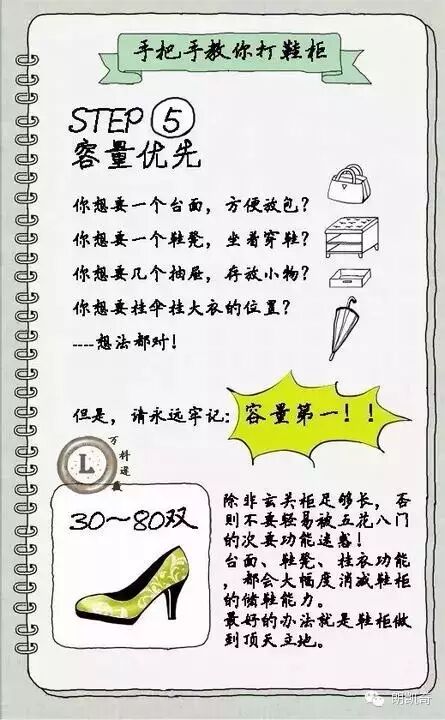 手把手教你打鞋柜
STEP ⑤
容量优先
你想要一个台面，方便放包？
你想要一个鞋凳，坐着穿鞋？
你想要几个抽屉，存放小物？
你想要挂伞挂大衣的位置？
----想法都对！
但是，请永远牢记：容量第一！！
L
30～80双
除非玄关柜足够长，否
则不要轻易被五花八门
的次要功能迷惑！
台面、鞋凳、挂衣功能
，都会大幅度消减鞋柜
的储鞋能力。
最好的办法就是鞋柜做
到顶天立地。
明凯奇